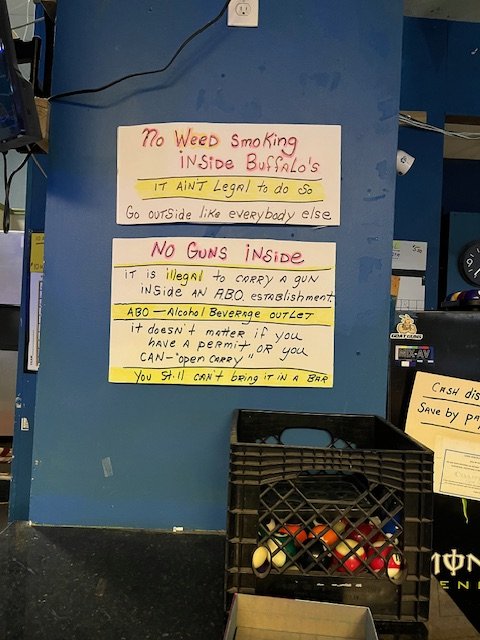 No Weed Smoking
Inside Buffalo's
It Ain't Legal to do so
Go outside like everybody else
No Guns Inside
It is illegal to carry a gun
inside an A.B.O. establishment
ABO — Alcohol Beverage Outlet
it doesn't matter if you
have a permit or you
can - "open carry"
You still can't bring it in a bar
GOATGUNS
MIX-AV
Cash dis
Save by pa
MON
EN